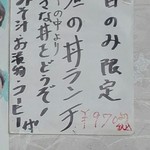 日のみ限定
の丼ランチ
の中より
きな丼をどうぞ!
みそ汁お漬物・コーヒー付
¥970